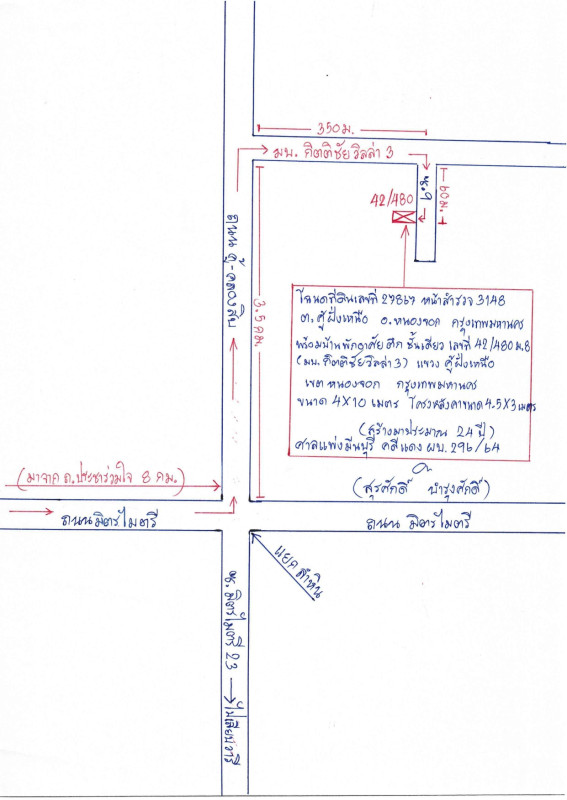 350 ม.
มบ. กิตติชัยวิลล่า 3
ซ.9
60 ม.
42/480
ถนน คู้-คลองสิบ
3.5 กม.
โฉนดที่ดินเลขที่ 27867 หน้าสำรวจ 3148
ต. คู้ฝั่งเหนือ อ.หนองจอก กรุงเทพมหานคร
พร้อมบ้านพักอาศัย ตึก ชั้นเดียว เลขที่ 42/480 ม.8
(มบ. กิตติชัยวิลล่า 3) แขวง คู้ฝั่งเหนือ
เขต หนองจอก กรุงเทพมหานคร
ขนาด 4X10 เมตร โครงหลังคาขนาด 4.5X3 เมตร
(สร้างมาประมาณ 24 ปี)
ศาลแพ่งมีนบุรี คดีแดง ผบ. 296/64
(สุรศักดิ์ บำรุงศักดิ์)
(มาจาก ถ.ประชาร่วมใจ 8 กม.)
ถนน มิตรไมตรี
ถนน มิตรไมตรี
แยกลำหิน
ซ. มิตรไมตรี 23
ไปเลียบวารี